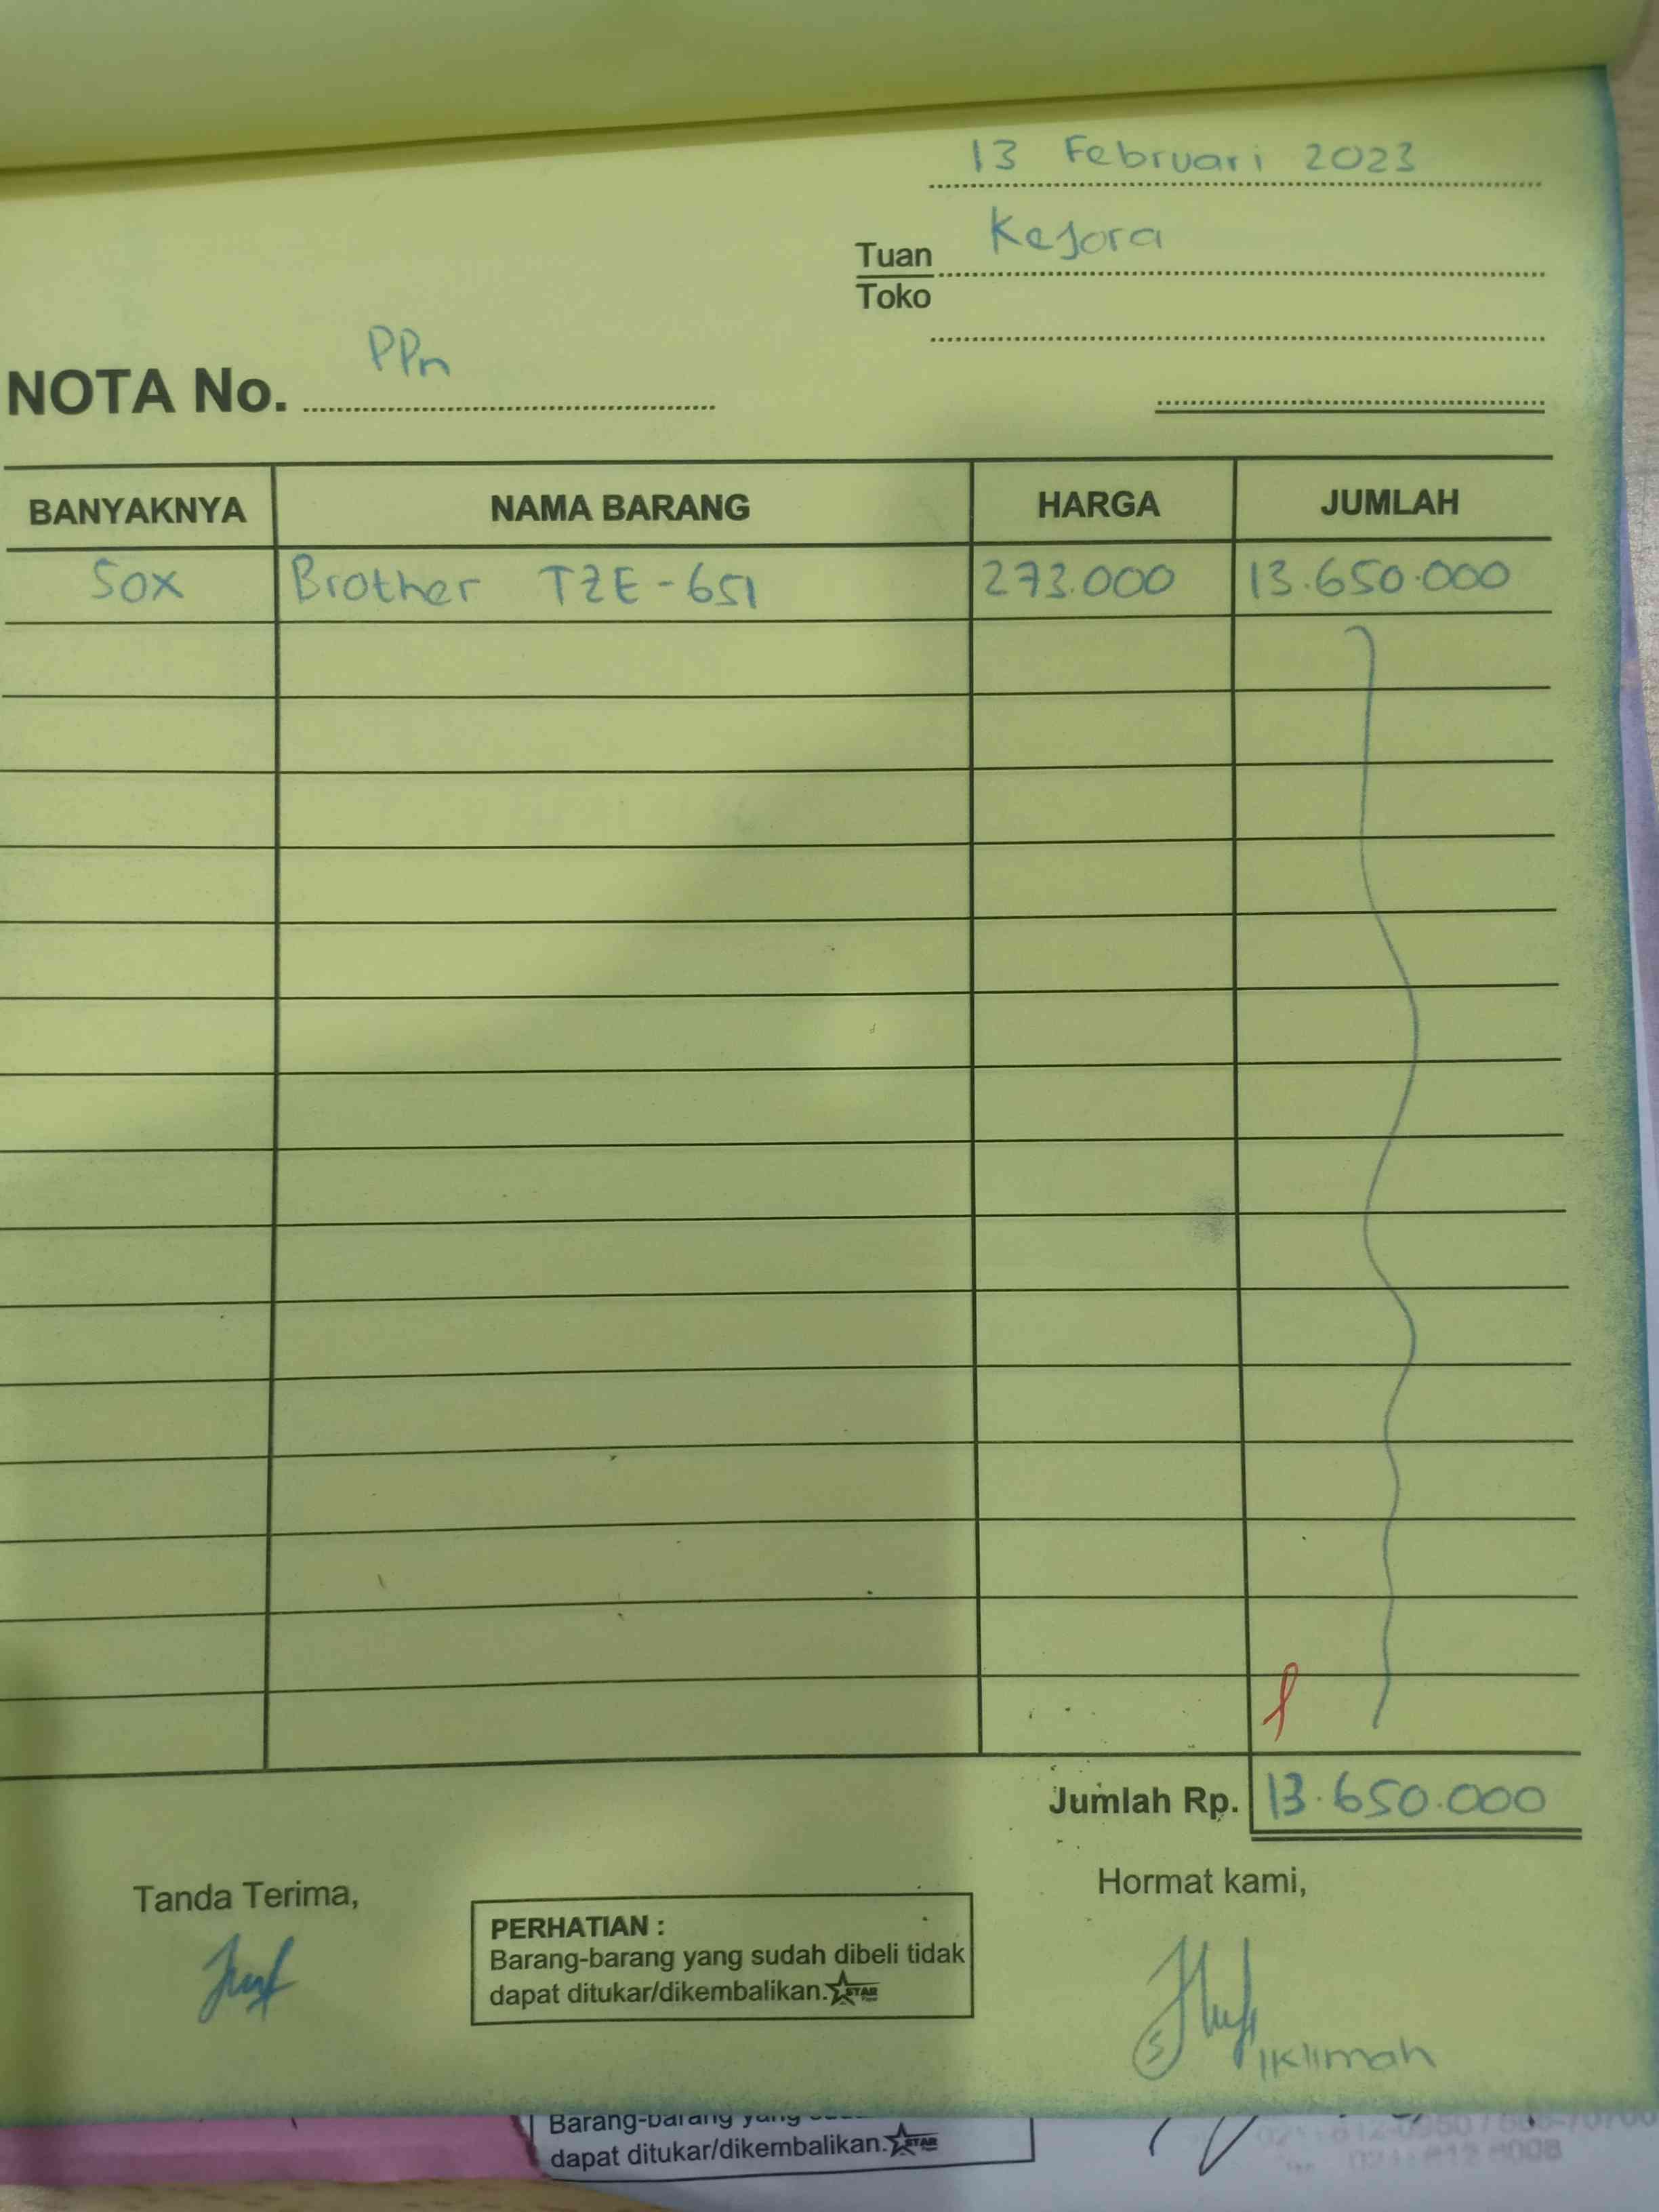 13 Februari 2023
Tuan Kejora
Toko
NOTA No. PPn
BANYAKNYA NAMA BARANG HARGA JUMLAH
50x Brother TZE-651 273.000 13.650.000
Jumlah Rp. 13.650.000
Tanda Terima, Hormat kami,
PERHATIAN :
Barang-barang yang sudah dibeli tidak
dapat ditukar/dikembalikan. STAR
Iklimah
Barang-barang yang
dapat ditukar/dikembalikan. STAR